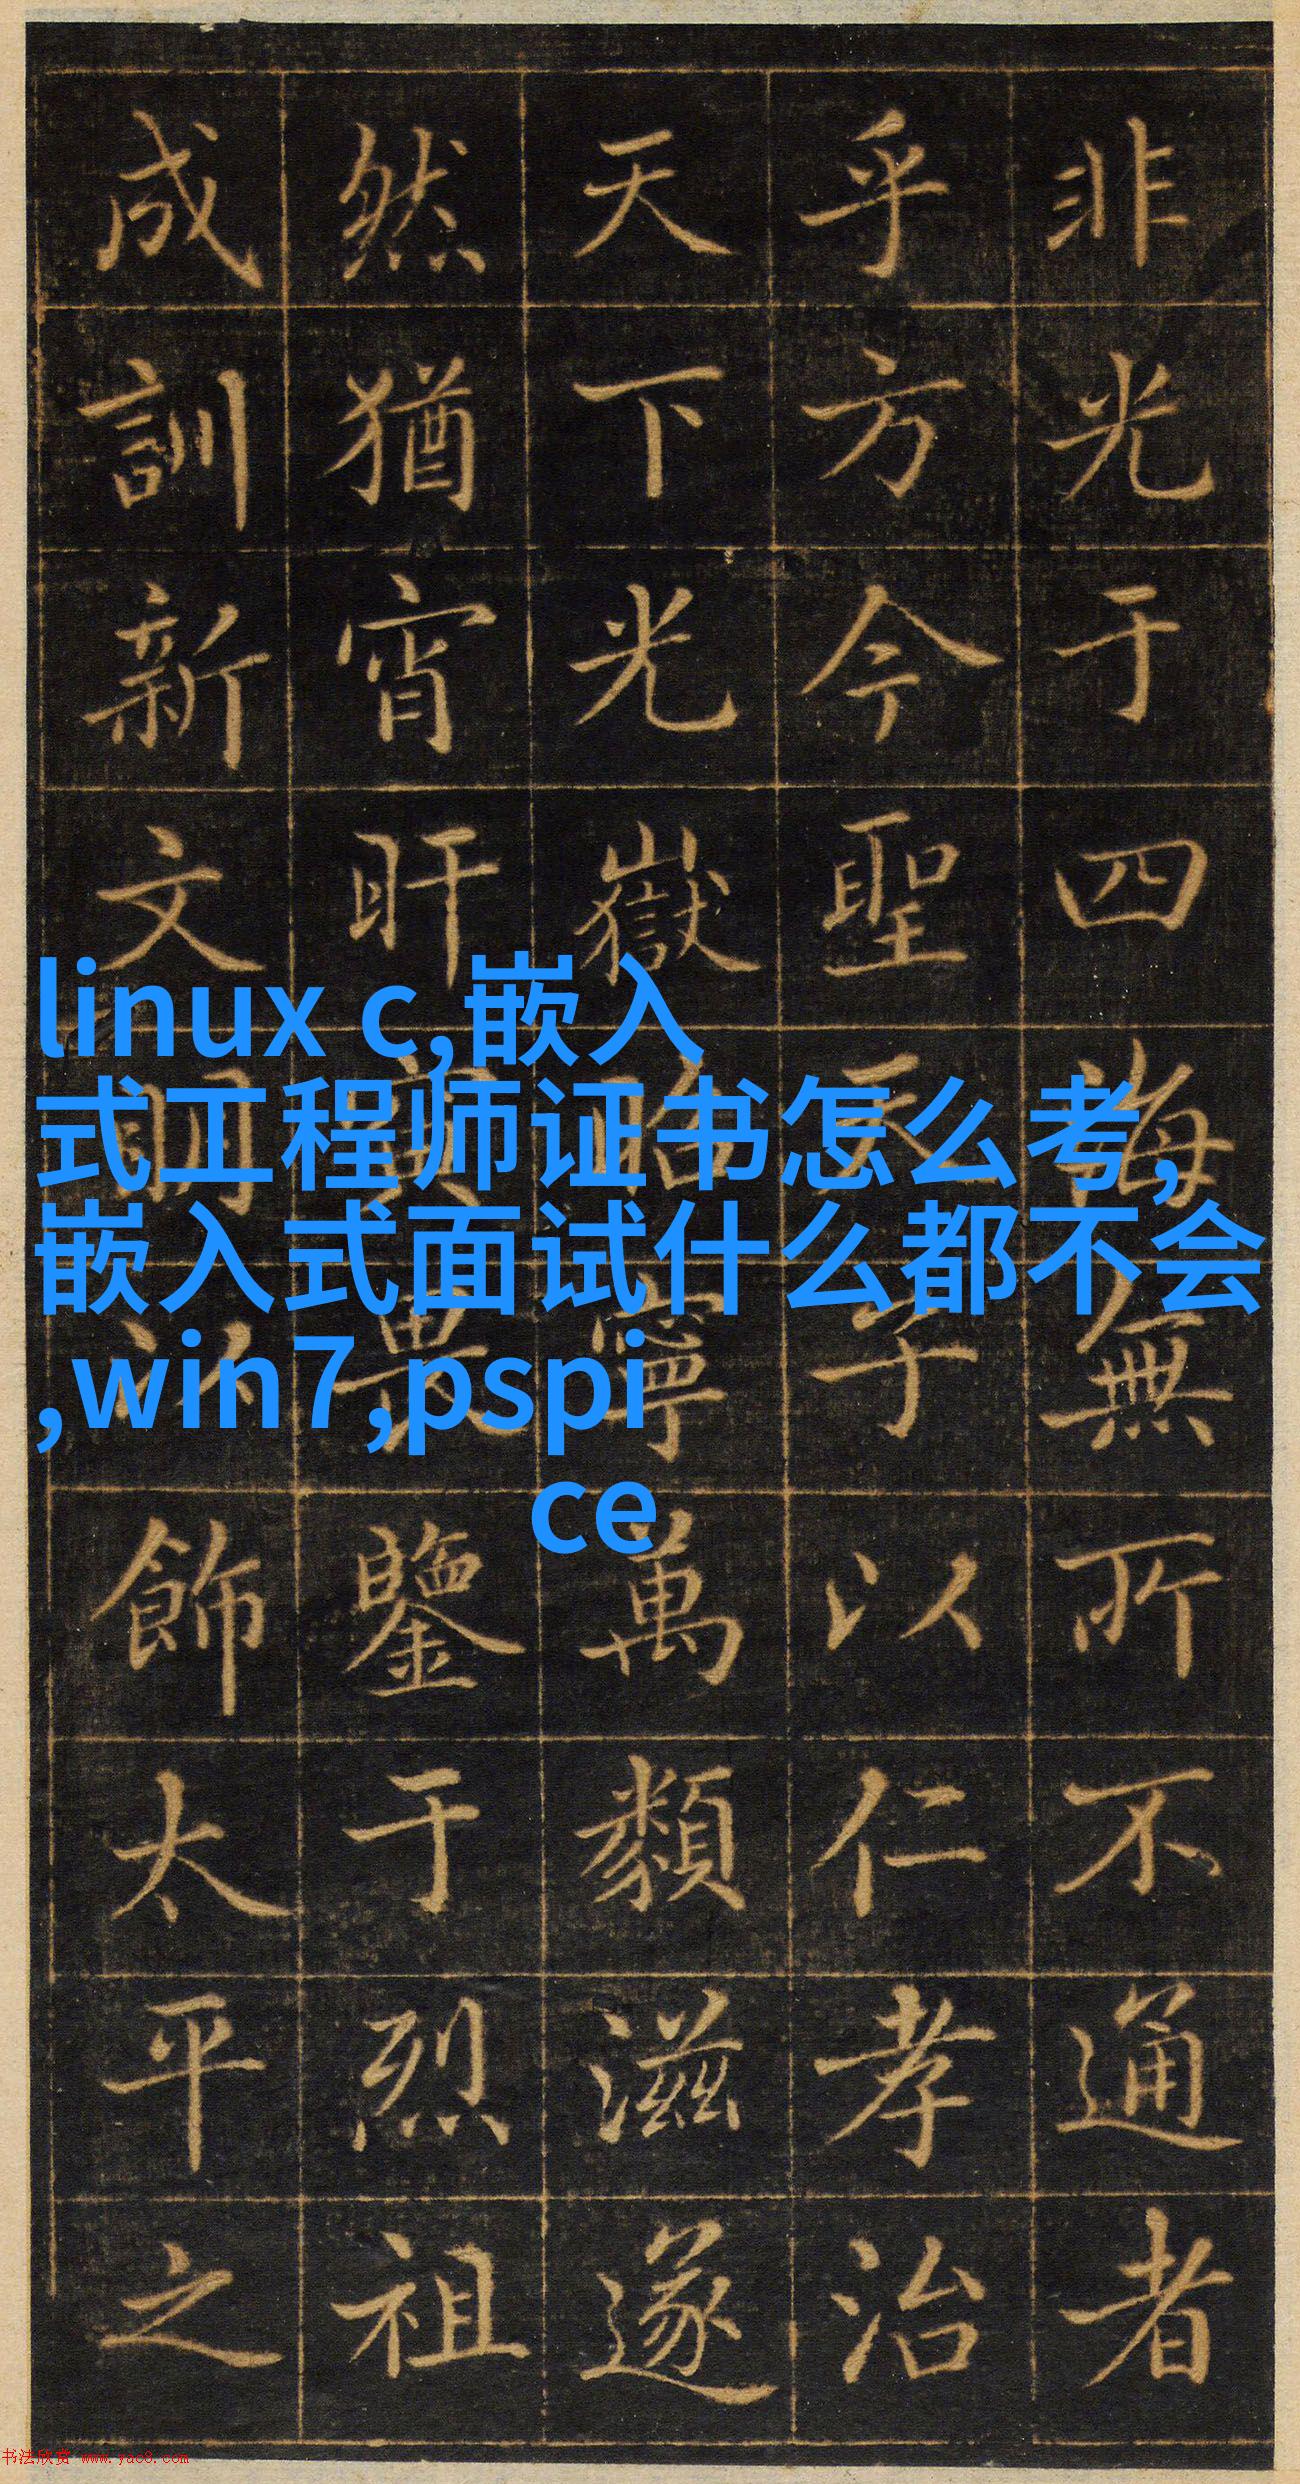 非光于四海無所不通者
乎方今聖天子以仁孝治
天下光嶽寧萬類滋遂
然猶宵旰寅畏鑒于烈祖
成訓新文明以飾太平之
linux c,嵌入
式工程师证书怎么考,
嵌入式面试什么都不会
,win7,pspi
ce
书法欣赏 www.yac8.com